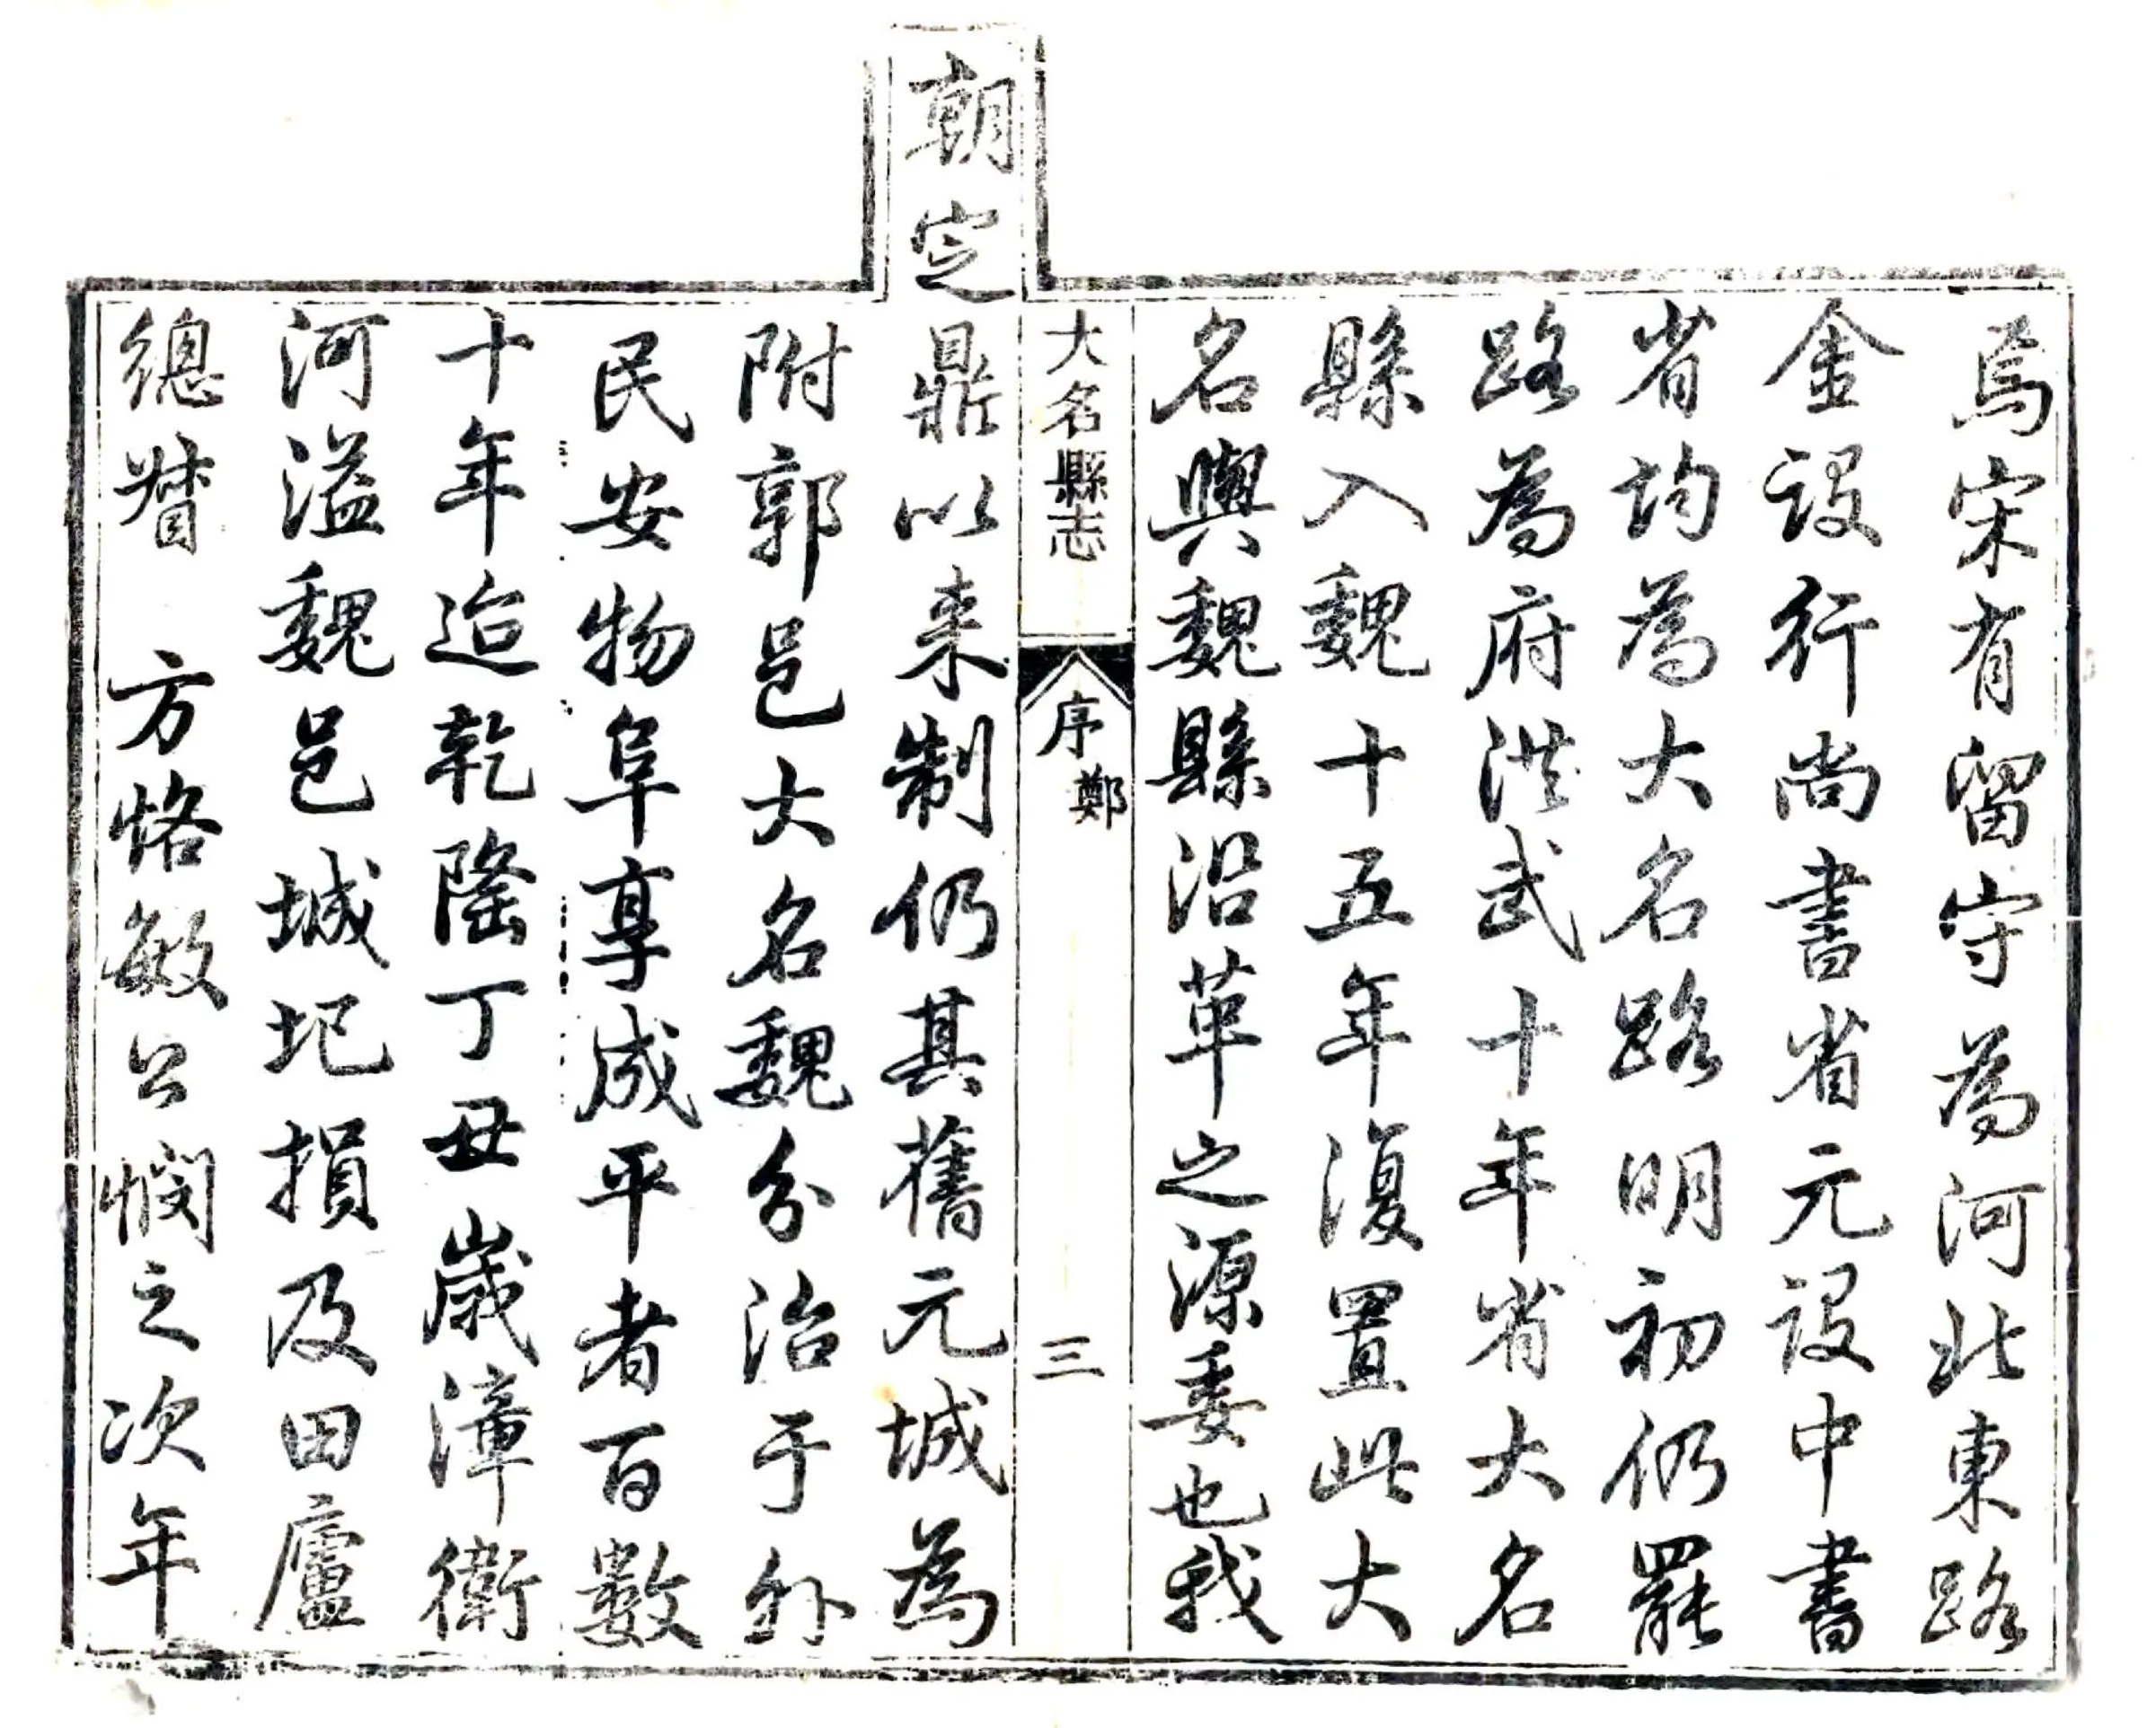 焉宋有留守為河北東路
金設行尚書省元設中書
省均為大名路明初仍罷
路為府洪武十年省大名
縣入魏十五年復置此大
名與魏縣沿革之源委也我
大名縣志
序鄭
三
朝定
鼎以来制仍其舊元城為
附郭邑大名魏分治于外
民安物阜享成平者百數
十年迨乾隆丁丑歲漳衛
河溢魏邑城圯損及田廬
總督 方恪敏公憫之次年